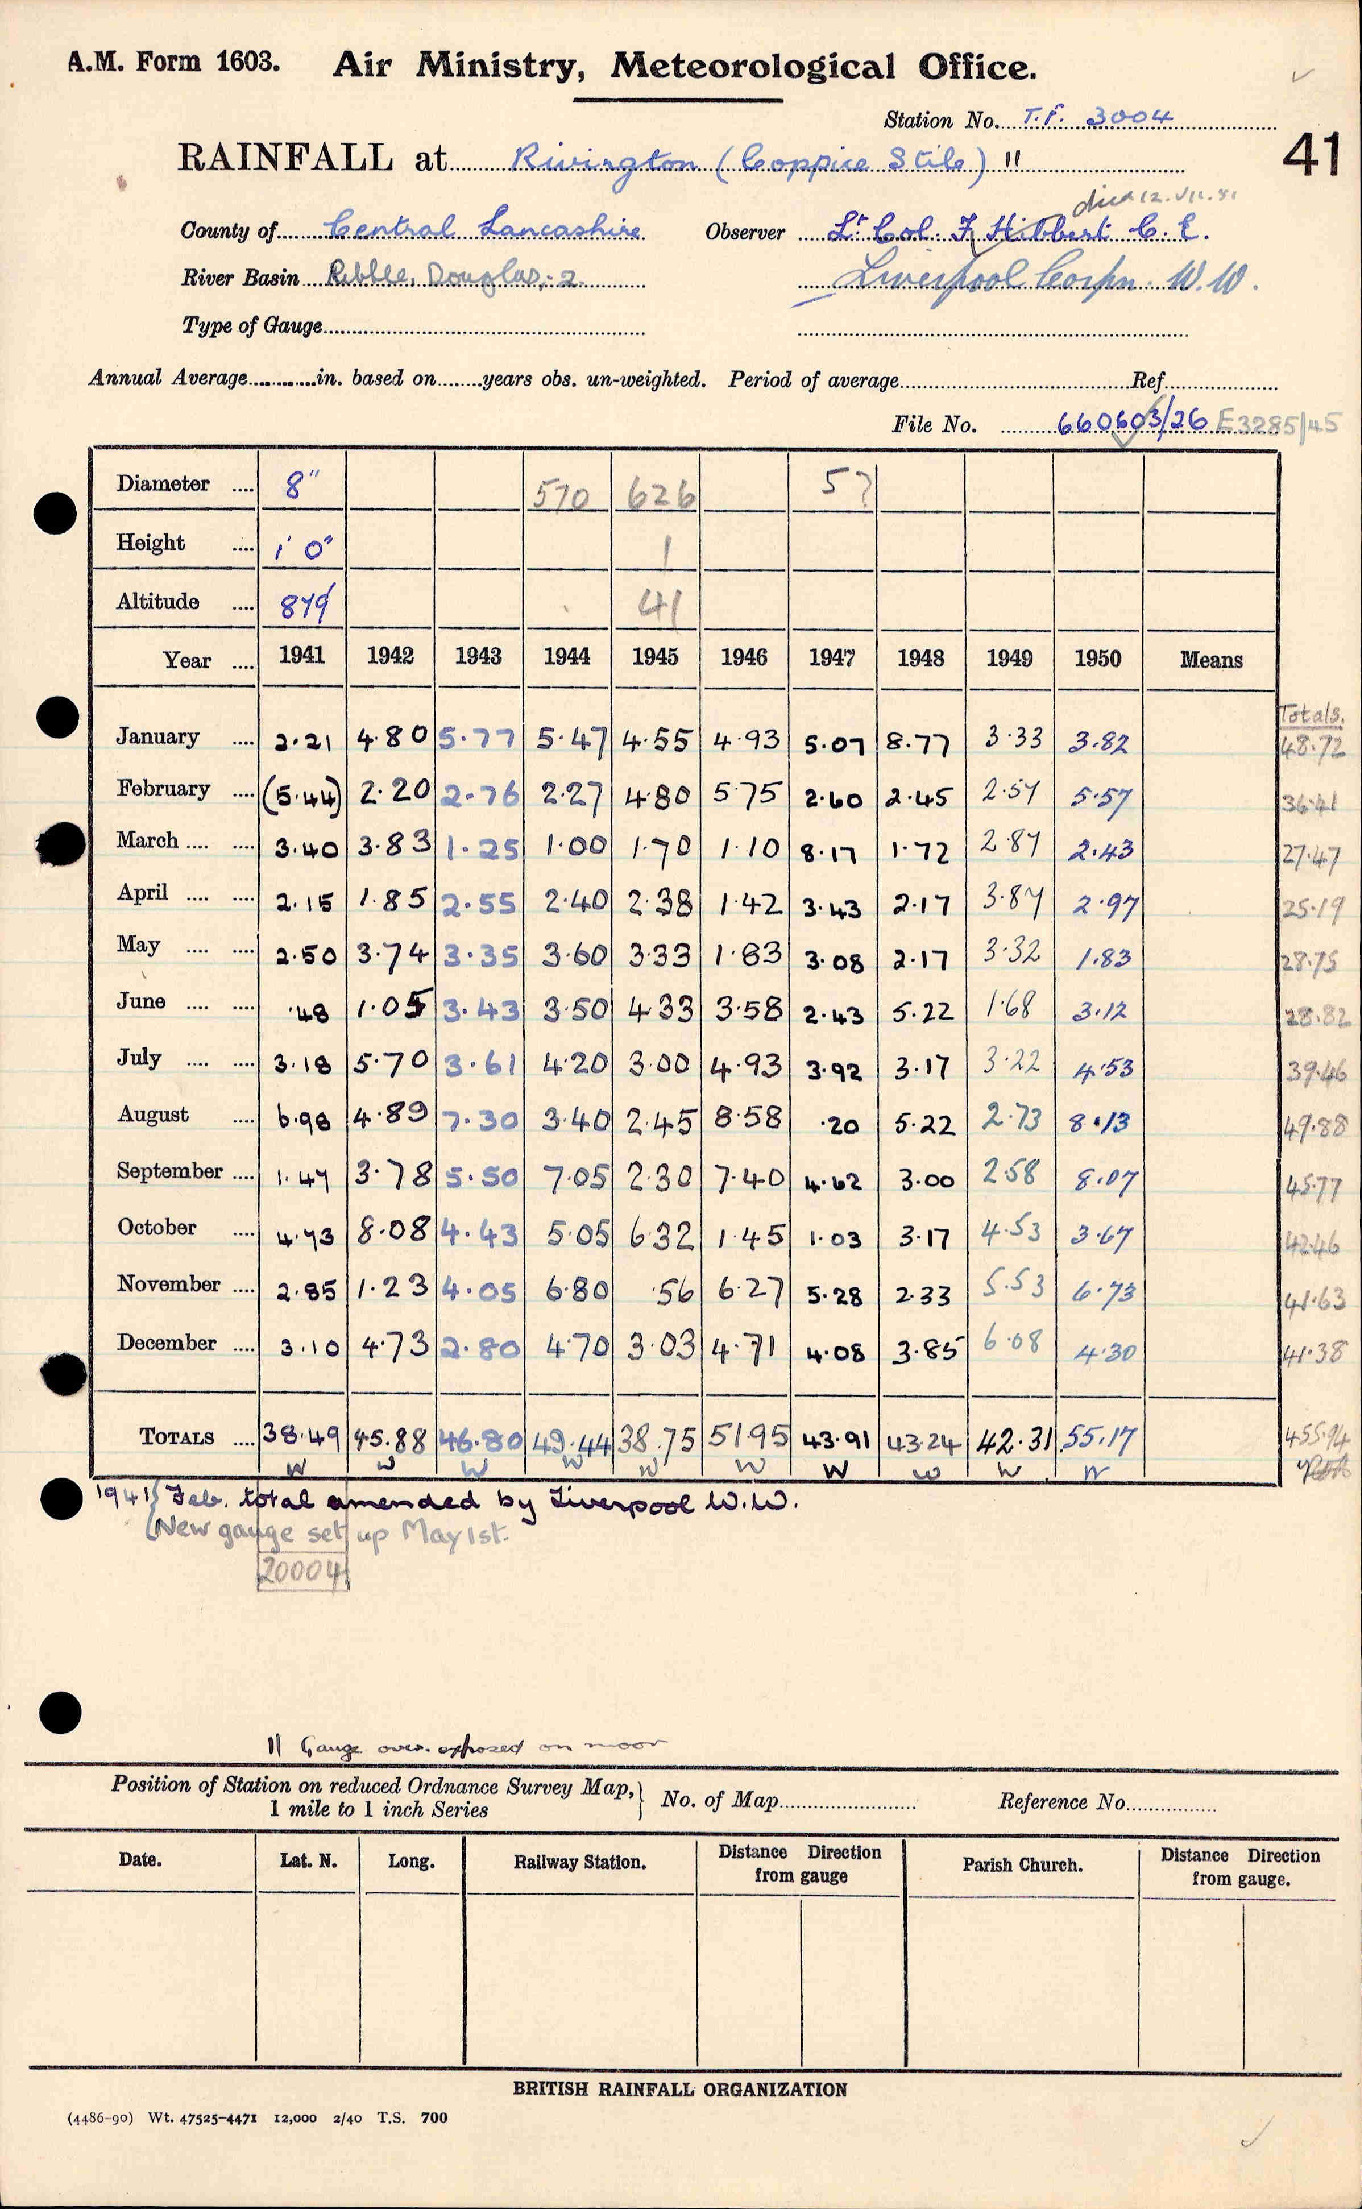 A.M. Form 1603. Air Ministry, Meteorological Office.
Station No. T.F. 3004
RAINFALL at Rivington (Coppice Stile) 11 41
died 12.VII.41
County of Central Lancashire Observer Lt Col. F Hibbert C.E.
River Basin Ribble, Douglas, 2 Liverpool Corpn. W.W.
Type of Gauge
Annual Average in. based on years obs. un-weighted. Period of average Ref
File No. 660603/26 E3285/45
Diameter 8" 570 626 5?
Height 1' 0" 1
Altitude 879 41
Year 1941 1942 1943 1944 1945 1946 1947 1948 1949 1950 Means
Totals.
January 2.21 4.80 5.77 5.47 4.55 4.93 5.07 8.77 3.33 3.82 48.72
February (5.44) 2.20 2.76 2.27 4.80 5.75 2.60 2.45 2.57 5.57 36.41
March 3.40 3.83 1.25 1.00 1.70 1.10 8.17 1.72 2.87 2.43 27.47
April 2.15 1.85 2.55 2.40 2.38 1.42 3.43 2.17 3.87 2.97 25.19
May 2.50 3.74 3.35 3.60 3.33 1.83 3.08 2.17 3.32 1.83 28.75
June .48 1.05 3.43 3.50 4.33 3.58 2.43 5.22 1.68 3.12 28.82
July 3.18 5.70 3.61 4.20 3.00 4.93 3.92 3.17 3.22 4.53 39.46
August 6.98 4.89 7.30 3.40 2.45 8.58 .20 5.22 2.73 8.13 49.88
September 1.47 3.78 5.50 7.05 2.30 7.40 4.62 3.00 2.58 8.07 45.77
October 4.73 8.08 4.43 5.05 6.32 1.45 1.03 3.17 4.53 3.67 42.46
November 2.85 1.23 4.05 6.80 .56 6.27 5.28 2.33 5.53 6.73 41.63
December 3.10 4.73 2.80 4.70 3.03 4.71 4.08 3.85 6.08 4.30 41.38
TOTALS 38.49 45.88 46.80 49.44 38.75 51.95 43.91 43.24 42.31 55.17 455.94
W W W W W W W W W W
1941 { Feb. total amended by Liverpool W.W.
{ New gauge set up May 1st.
20004
11 Gauge over-exposed on moor
Position of Station on reduced Ordnance Survey Map, } No. of Map Reference No.
1 mile to 1 inch Series
Date. Lat. N. Long. Railway Station. Distance Direction from gauge Parish Church. Distance Direction from gauge.
BRITISH RAINFALL ORGANIZATION
(4486-90) Wt. 47525-4471 12,000 2/40 T.S. 700